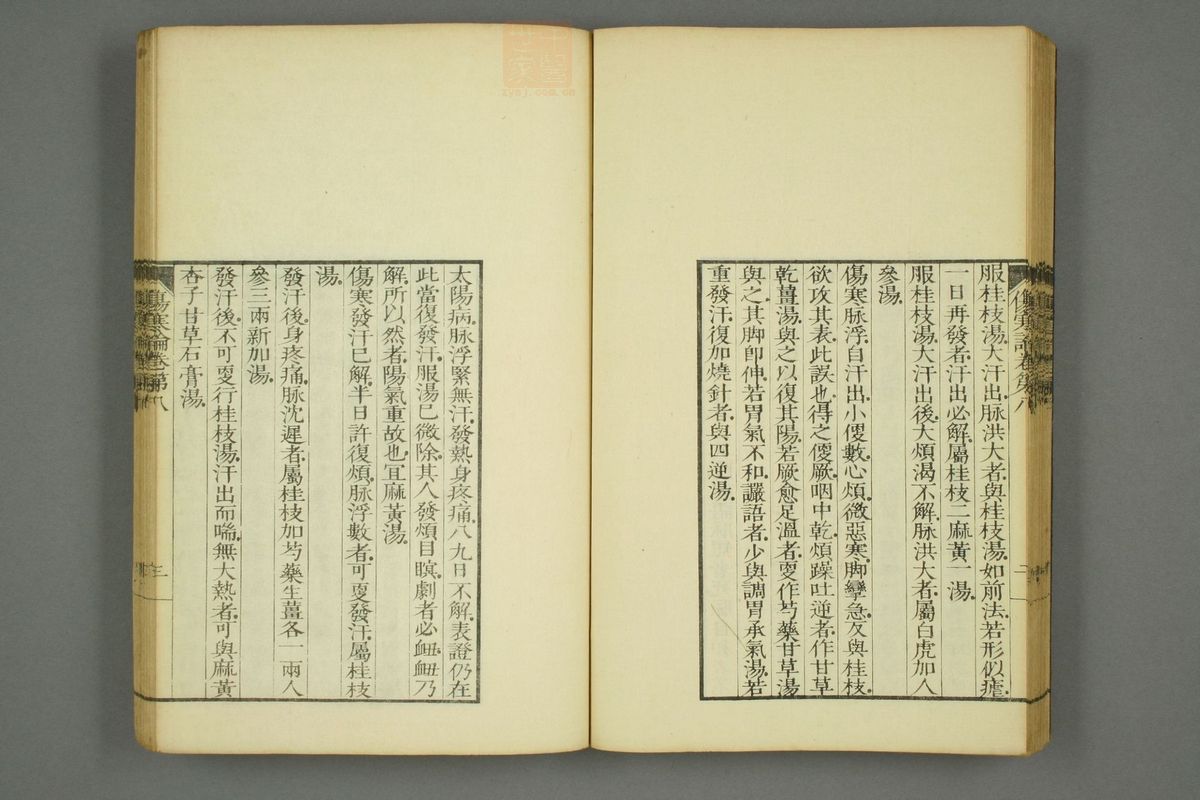 服桂枝湯大汗出脉洪大者與桂枝湯如前法若形似瘧
一日再發者汗出必解屬桂枝二麻黃一湯
服桂枝湯大汗出後大煩渴不解脉洪大者屬白虎加人
參湯
傷寒脉浮自汗出小便數心煩微惡寒脚攣急反與桂枝
欲攻其表此誤也得之便厥咽中乾煩躁吐逆者作甘草
乾薑湯與之以復其陽若厥愈足溫者更作芍藥甘草湯
與之其脚卽伸若胃氣不和讝語者少與調胃承氣湯若
重發汗復加燒針者與四逆湯
太陽病脉浮緊無汗發熱身疼痛八九日不解表證仍在
此當復發汗服湯已微除其人發煩目瞑劇者必衄衄乃
解所以然者陽氣重故也冝麻黃湯
傷寒發汗已解半日許復煩脉浮數者可更發汗屬桂枝
湯
發汗後身疼痛脉沈遲者屬桂枝加芍藥生薑各一兩人
參三兩新加湯
發汗後不可更行桂枝湯汗出而喘無大熱者可與麻黃
杏子甘草石膏湯
傷寒論卷第八
三
zysj.com.cn